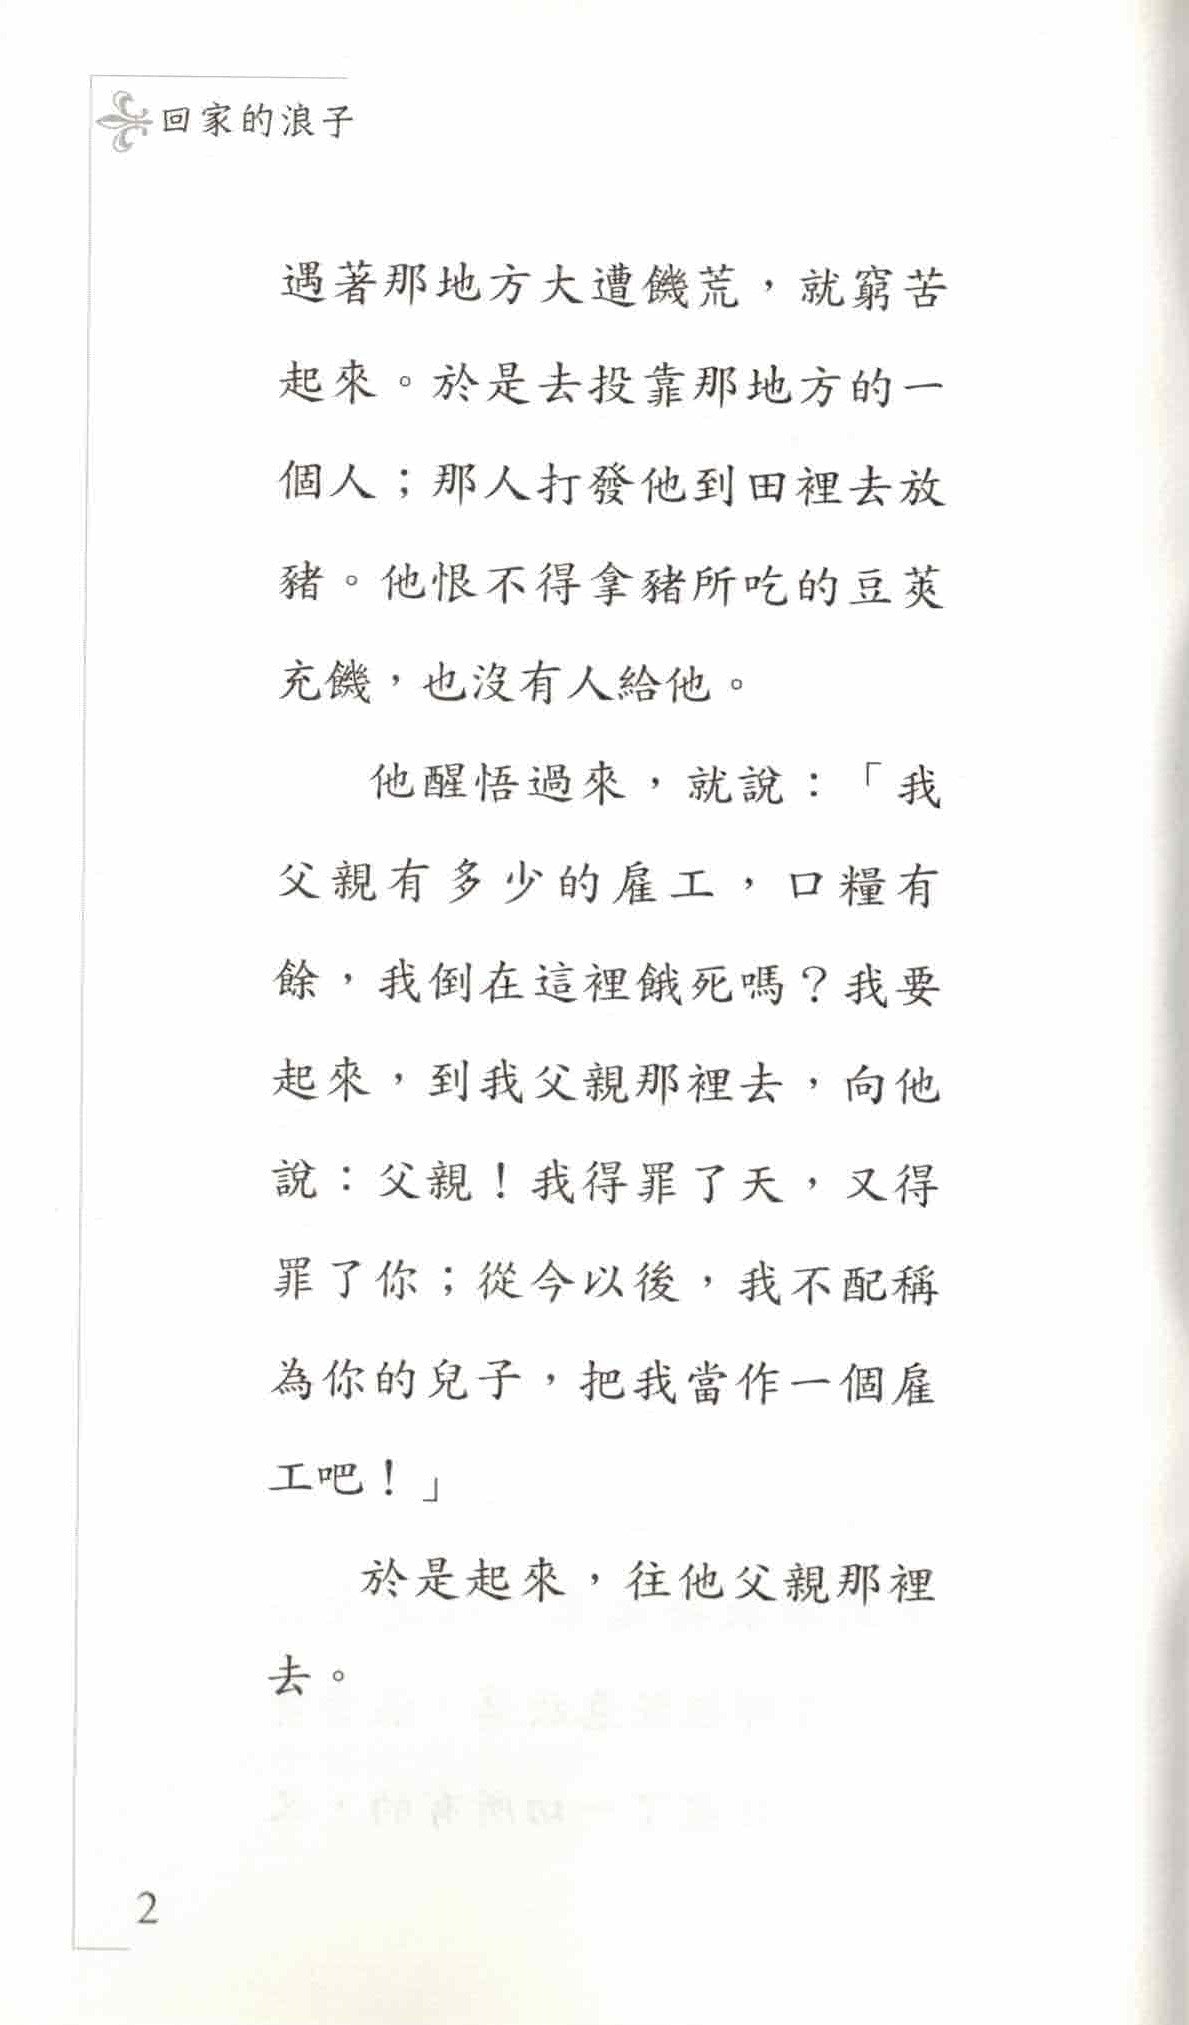 回家的浪子
遇著那地方大遭饑荒，就窮苦
起來。於是去投靠那地方的一
個人；那人打發他到田裡去放
豬。他恨不得拿豬所吃的豆莢
充饑，也沒有人給他。
他醒悟過來，就說：「我
父親有多少的雇工，口糧有
餘，我倒在這裡餓死嗎？我要
起來，到我父親那裡去，向他
說：父親！我得罪了天，又得
罪了你；從今以後，我不配稱
為你的兒子，把我當作一個雇
工吧！」
於是起來，往他父親那裡
去。
2